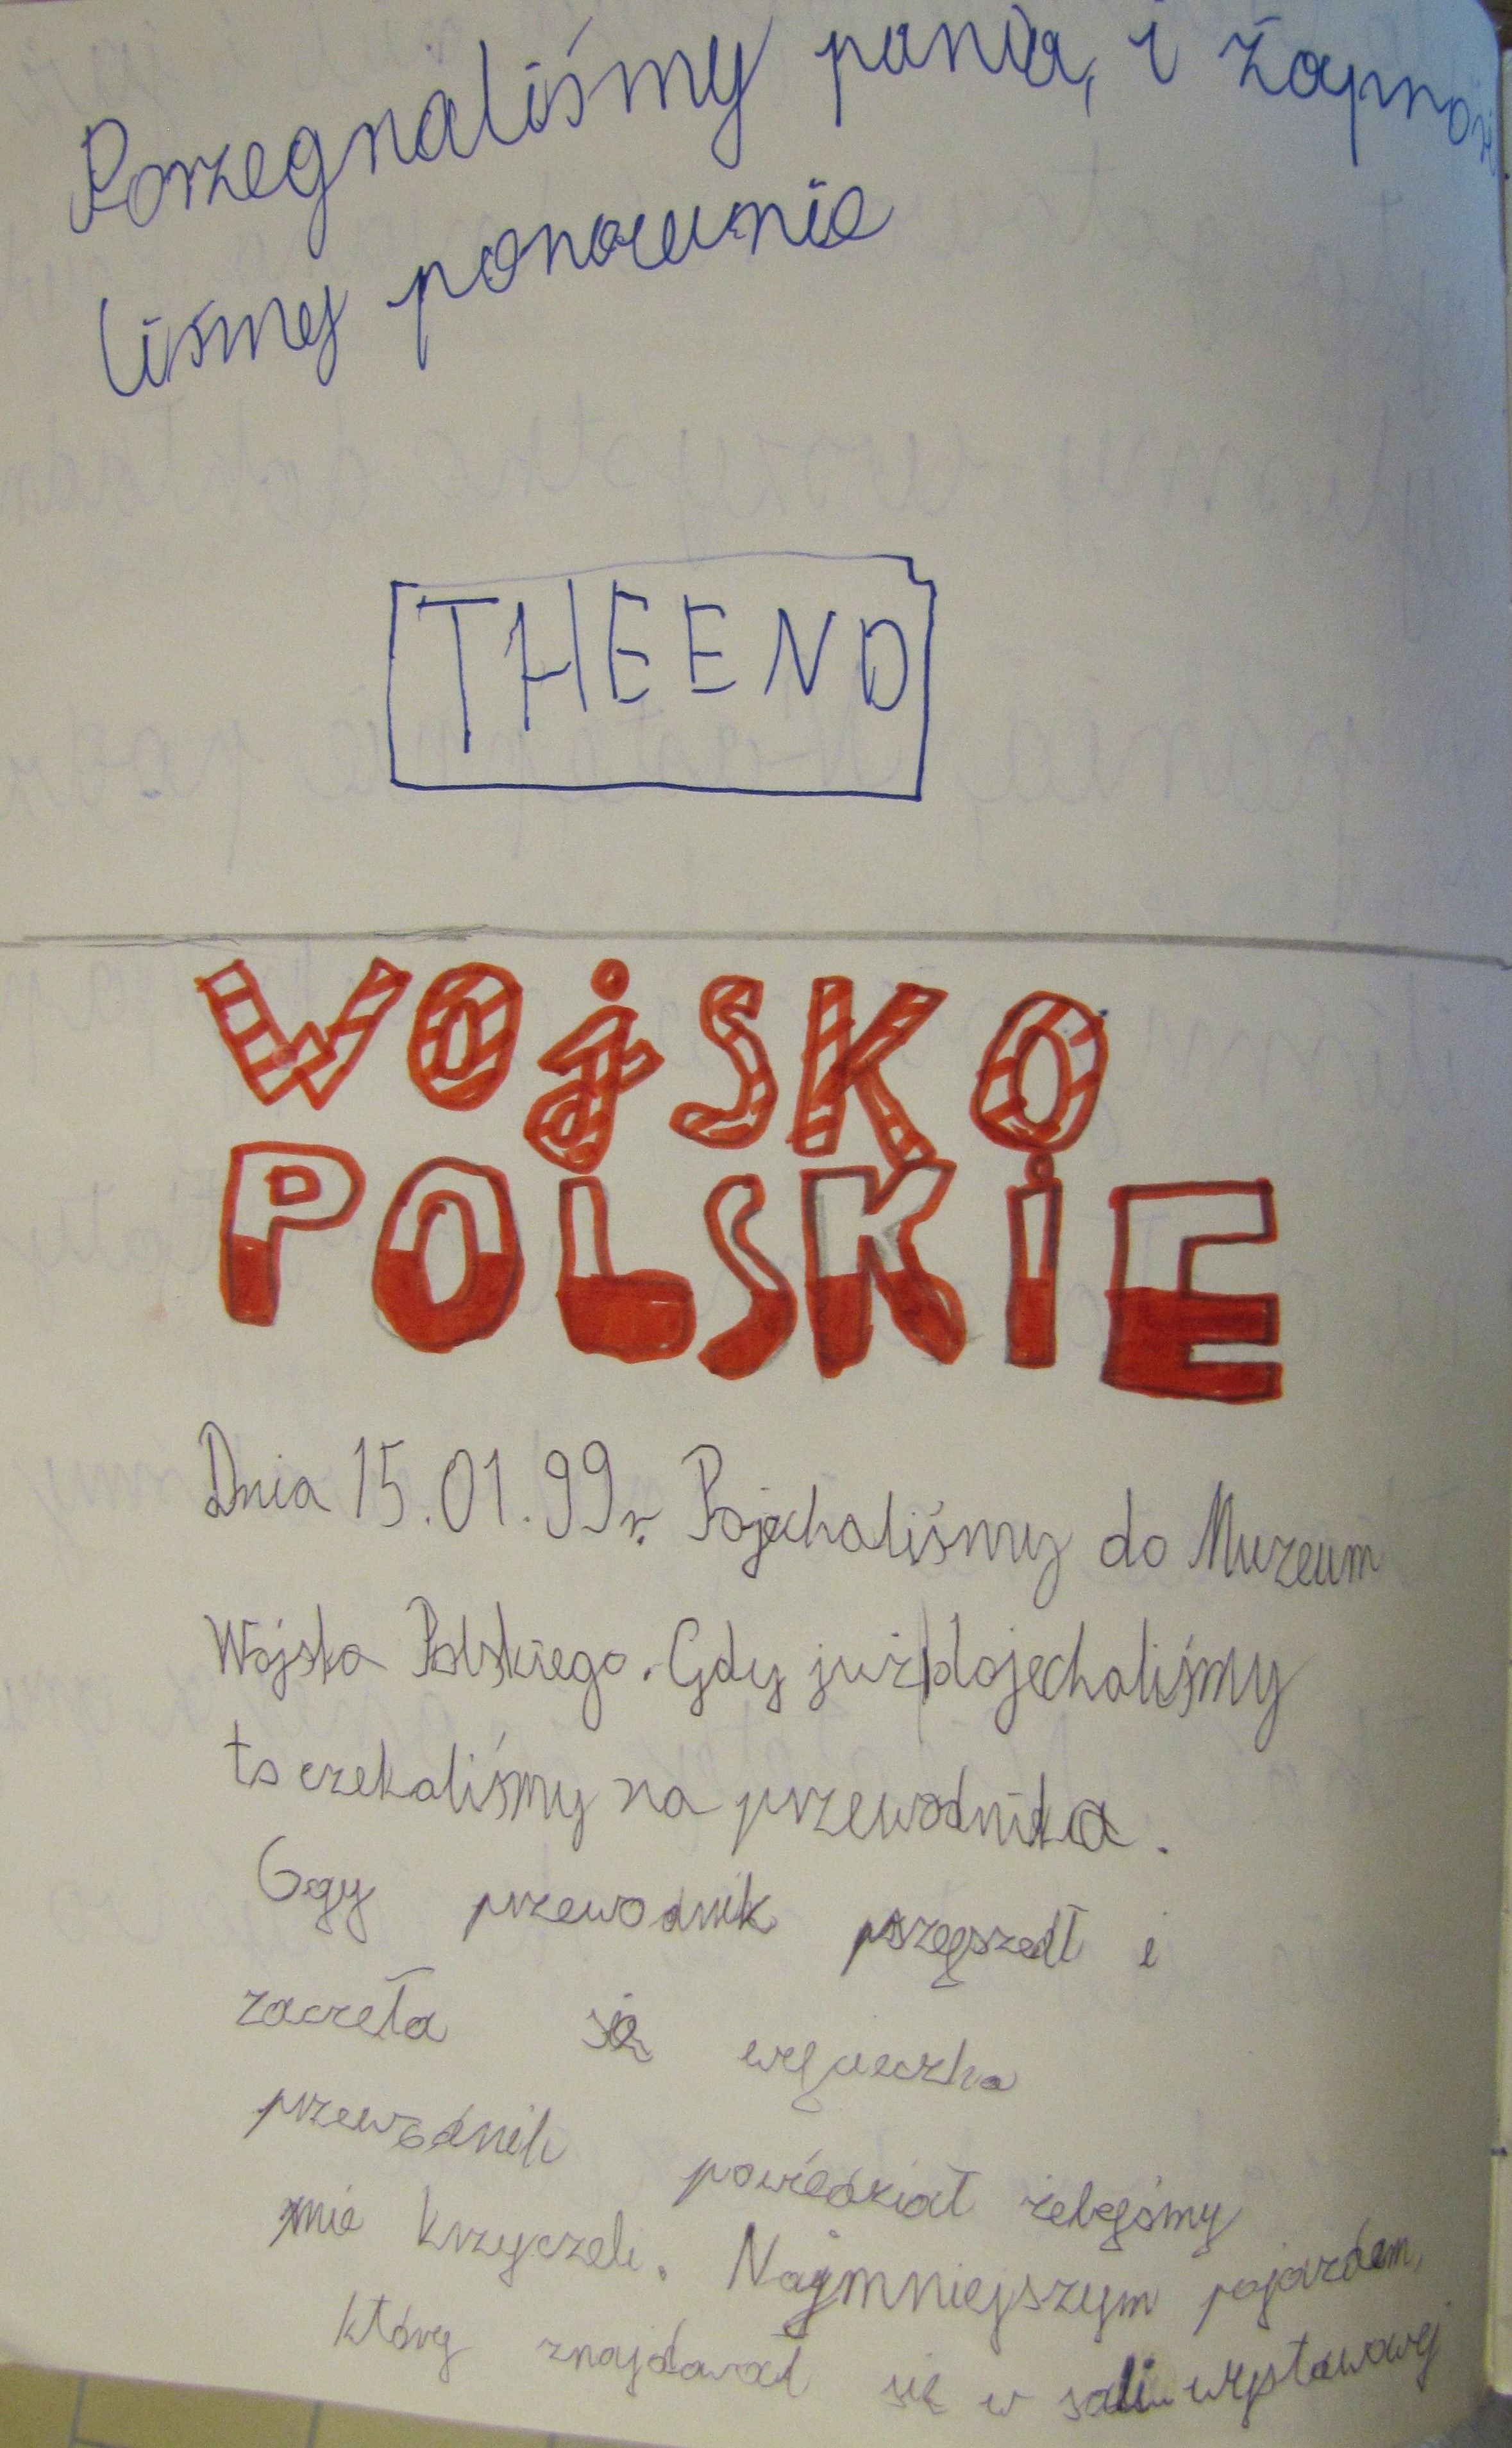 Porzegnaliśmy panią, i zapro
liśmy ponownie
THE END
WOjSKO
POLSKiE
Dnia 15.01.99r. Pojechaliśmy do Muzeum
Wojska Polskiego. Gdy już dojechaliśmy
to czekaliśmy na przewodnika.
Gdy przewodnik przyszedł i
zaczeła się wycieczka
przewodnik powiedział żebyśmy
nie krzyczeli. Najmniejszym pojazdem,
który znajdował się w sali wystawowej